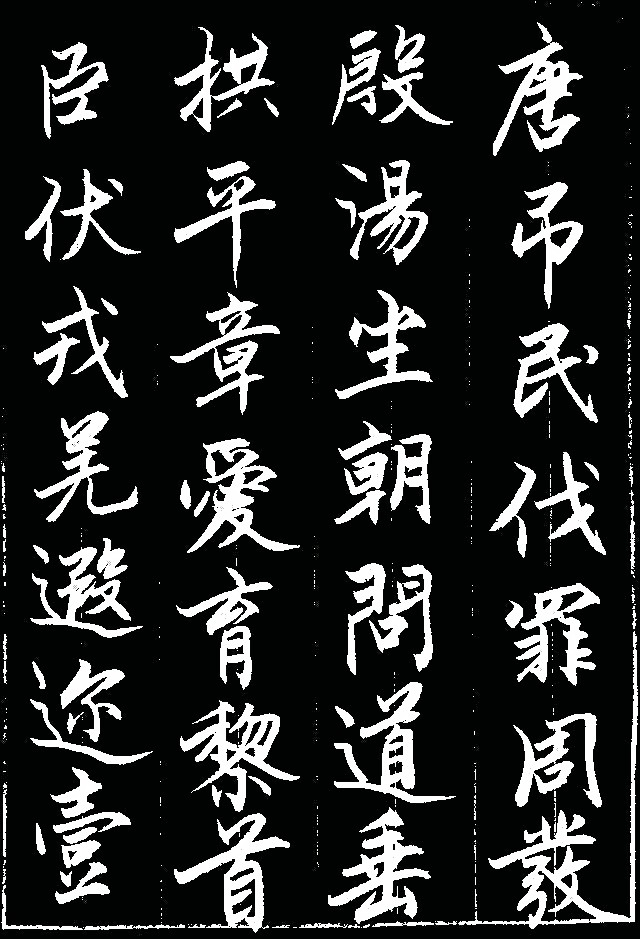 唐吊民伐罪周發
殷湯坐朝問道垂
拱平章愛育黎首
臣伏戎羌遐迩壹